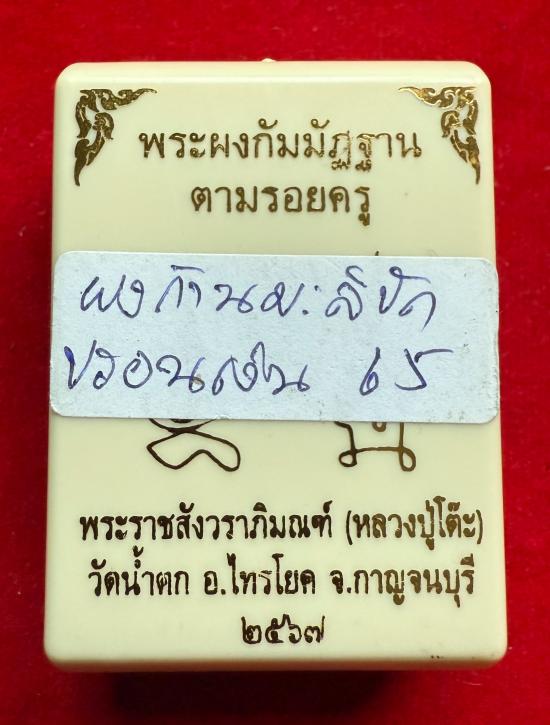 พระผงกัมมัฏฐาน
ตามรอยครู
ผงก้านมะลิขัด
ปรอนเงิน 65
พระราชสังวราภิมณฑ์ (หลวงปู่โต๊ะ)
วัดน้ำตก อ.ไทรโยค จ.กาญจนบุรี
๒๕๖๗